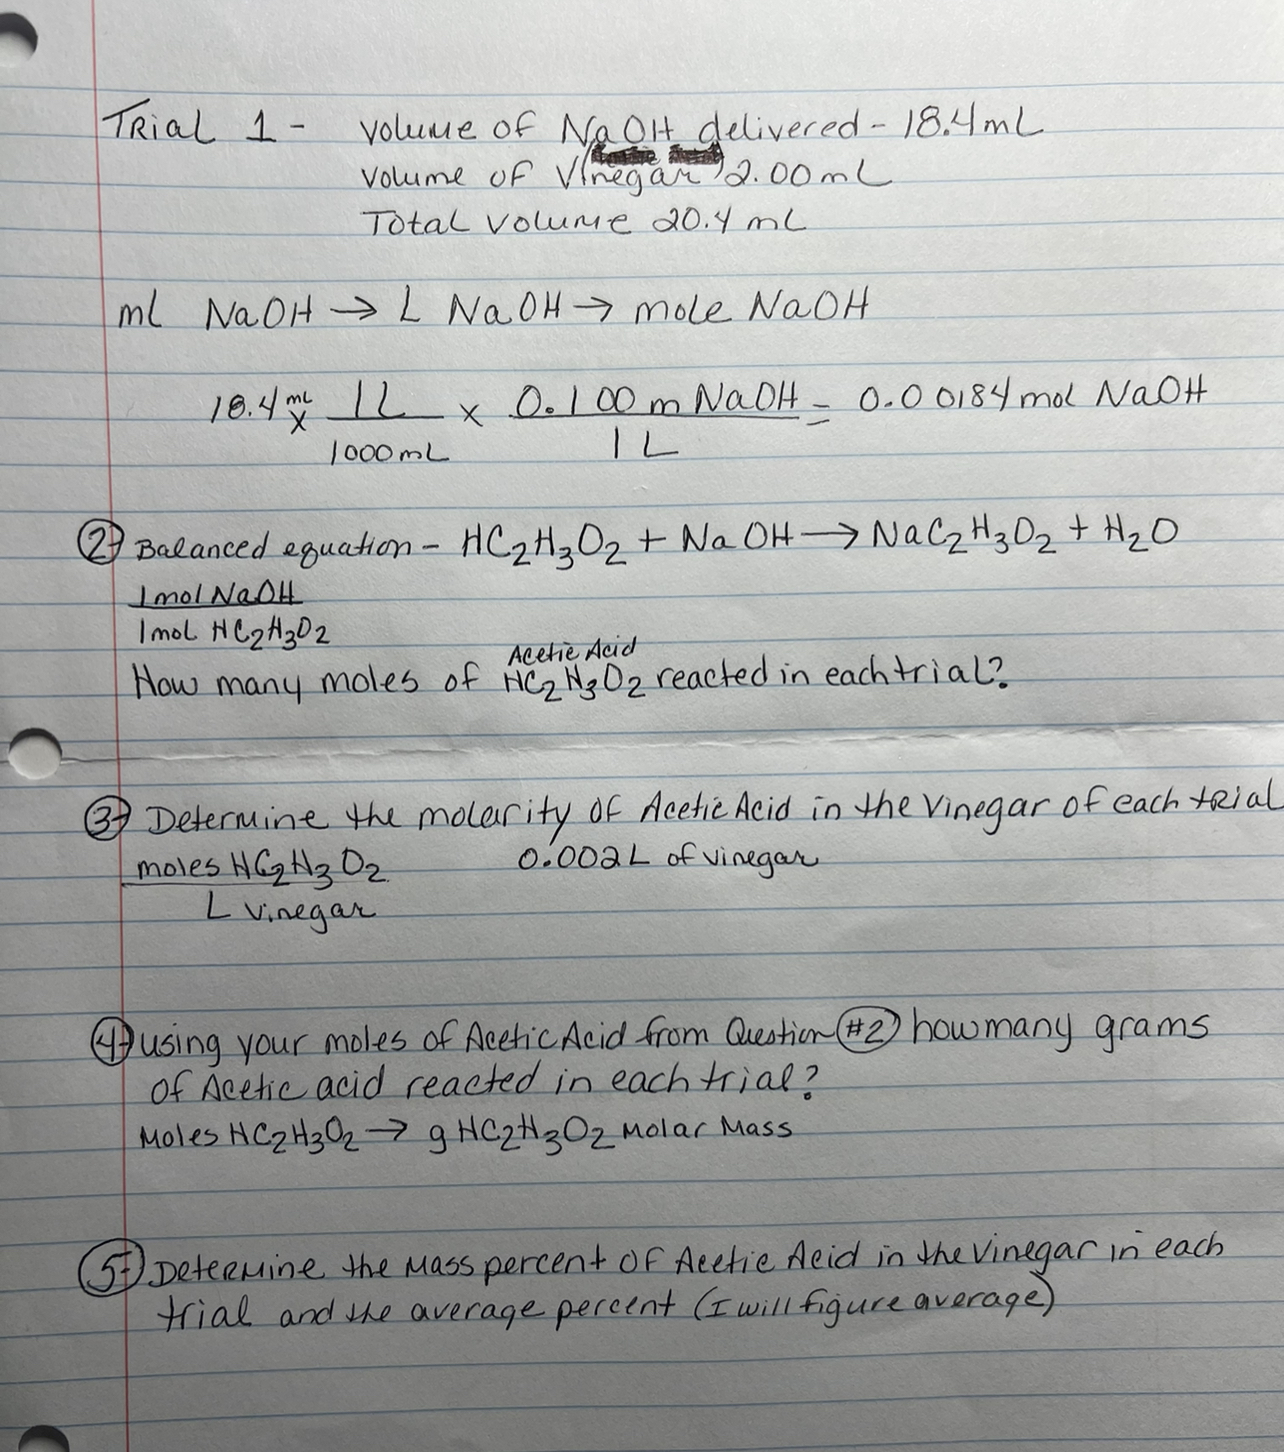 Trial 1 - volume of NaOH delivered - 18.4 mL
volume of Vinegar 2.00 mL
Total volume 20.4 mL
ml NaOH → L NaOH → mole NaOH
18.4 mL x 1L / 1000 mL x 0.100 m NaOH / 1 L = 0.00184 mol NaOH
② Balanced equation - HC₂H₃O₂ + NaOH → NaC₂H₃O₂ + H₂O
1 mol NaOH
1 mol HC₂H₃O₂
Acetic Acid
How many moles of HC₂H₃O₂ reacted in each trial?
③ Determine the molarity of Acetic Acid in the Vinegar of each trial
moles HC₂H₃O₂ 0.002 L of vinegar
L vinegar
④ using your moles of Acetic Acid from Question #2 how many grams
of Acetic acid reacted in each trial?
Moles HC₂H₃O₂ → g HC₂H₃O₂ Molar Mass
⑤ Determine the Mass percent of Acetic Acid in the Vinegar in each
trial and the average percent (I will figure average)